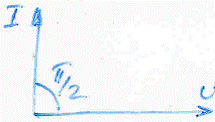 I
π/2
U